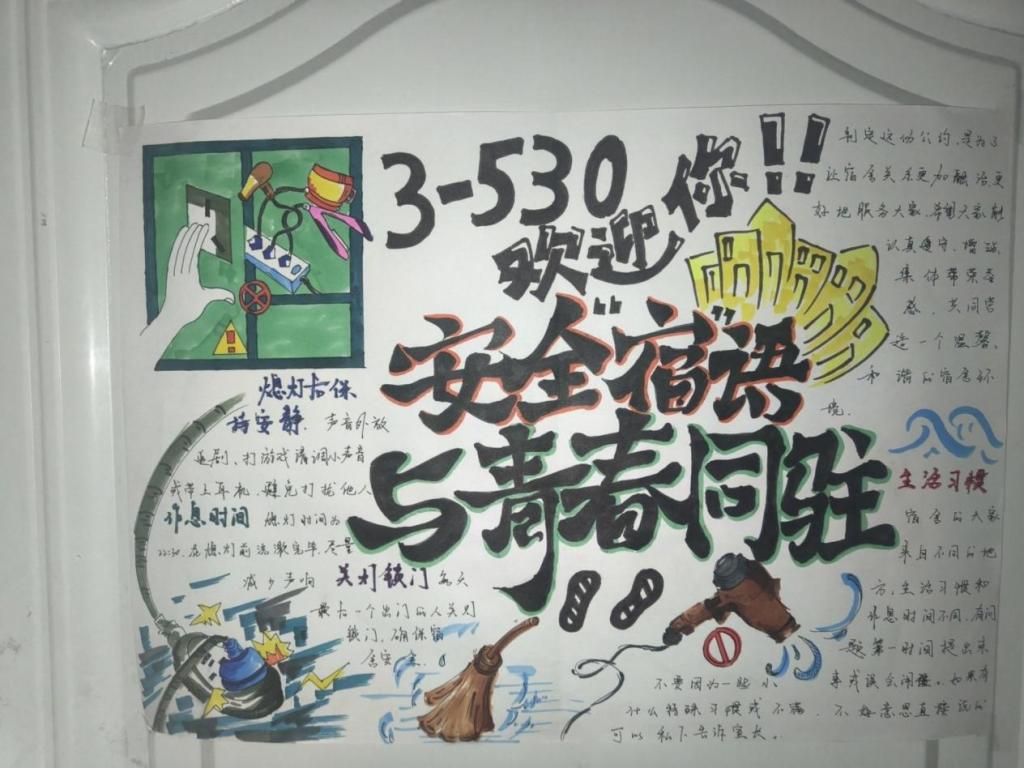 3-530
欢迎你!!
安全"宿"误
与青春同驻!!
制定这份公约,是为了
让宿舍关系更加融洽更
好地服务大家,希望大家能
认真遵守、增强
集体荣
感,共同营
造一个温馨、
和谐的宿舍环
境.
熄灯后保
持安静.声音外放
追剧、打游戏请调小声音
或带上耳机,避免打扰他人
作息时间 熄灯时间为
22:30,在熄灯前洗漱完毕,尽量
减少声响 关灯锁门 每天
最后一个出门的人关灯
锁门,确保宿
舍安全.
生活习惯
宿舍的大家
来自不同的地
方,生活习惯和
作息时间不同,有问
题第一时间提出来
不要因为一些小
事或误会闹僵,如果有
什么特殊习惯或不满,不好意思直接说的
可以私下告诉室长.